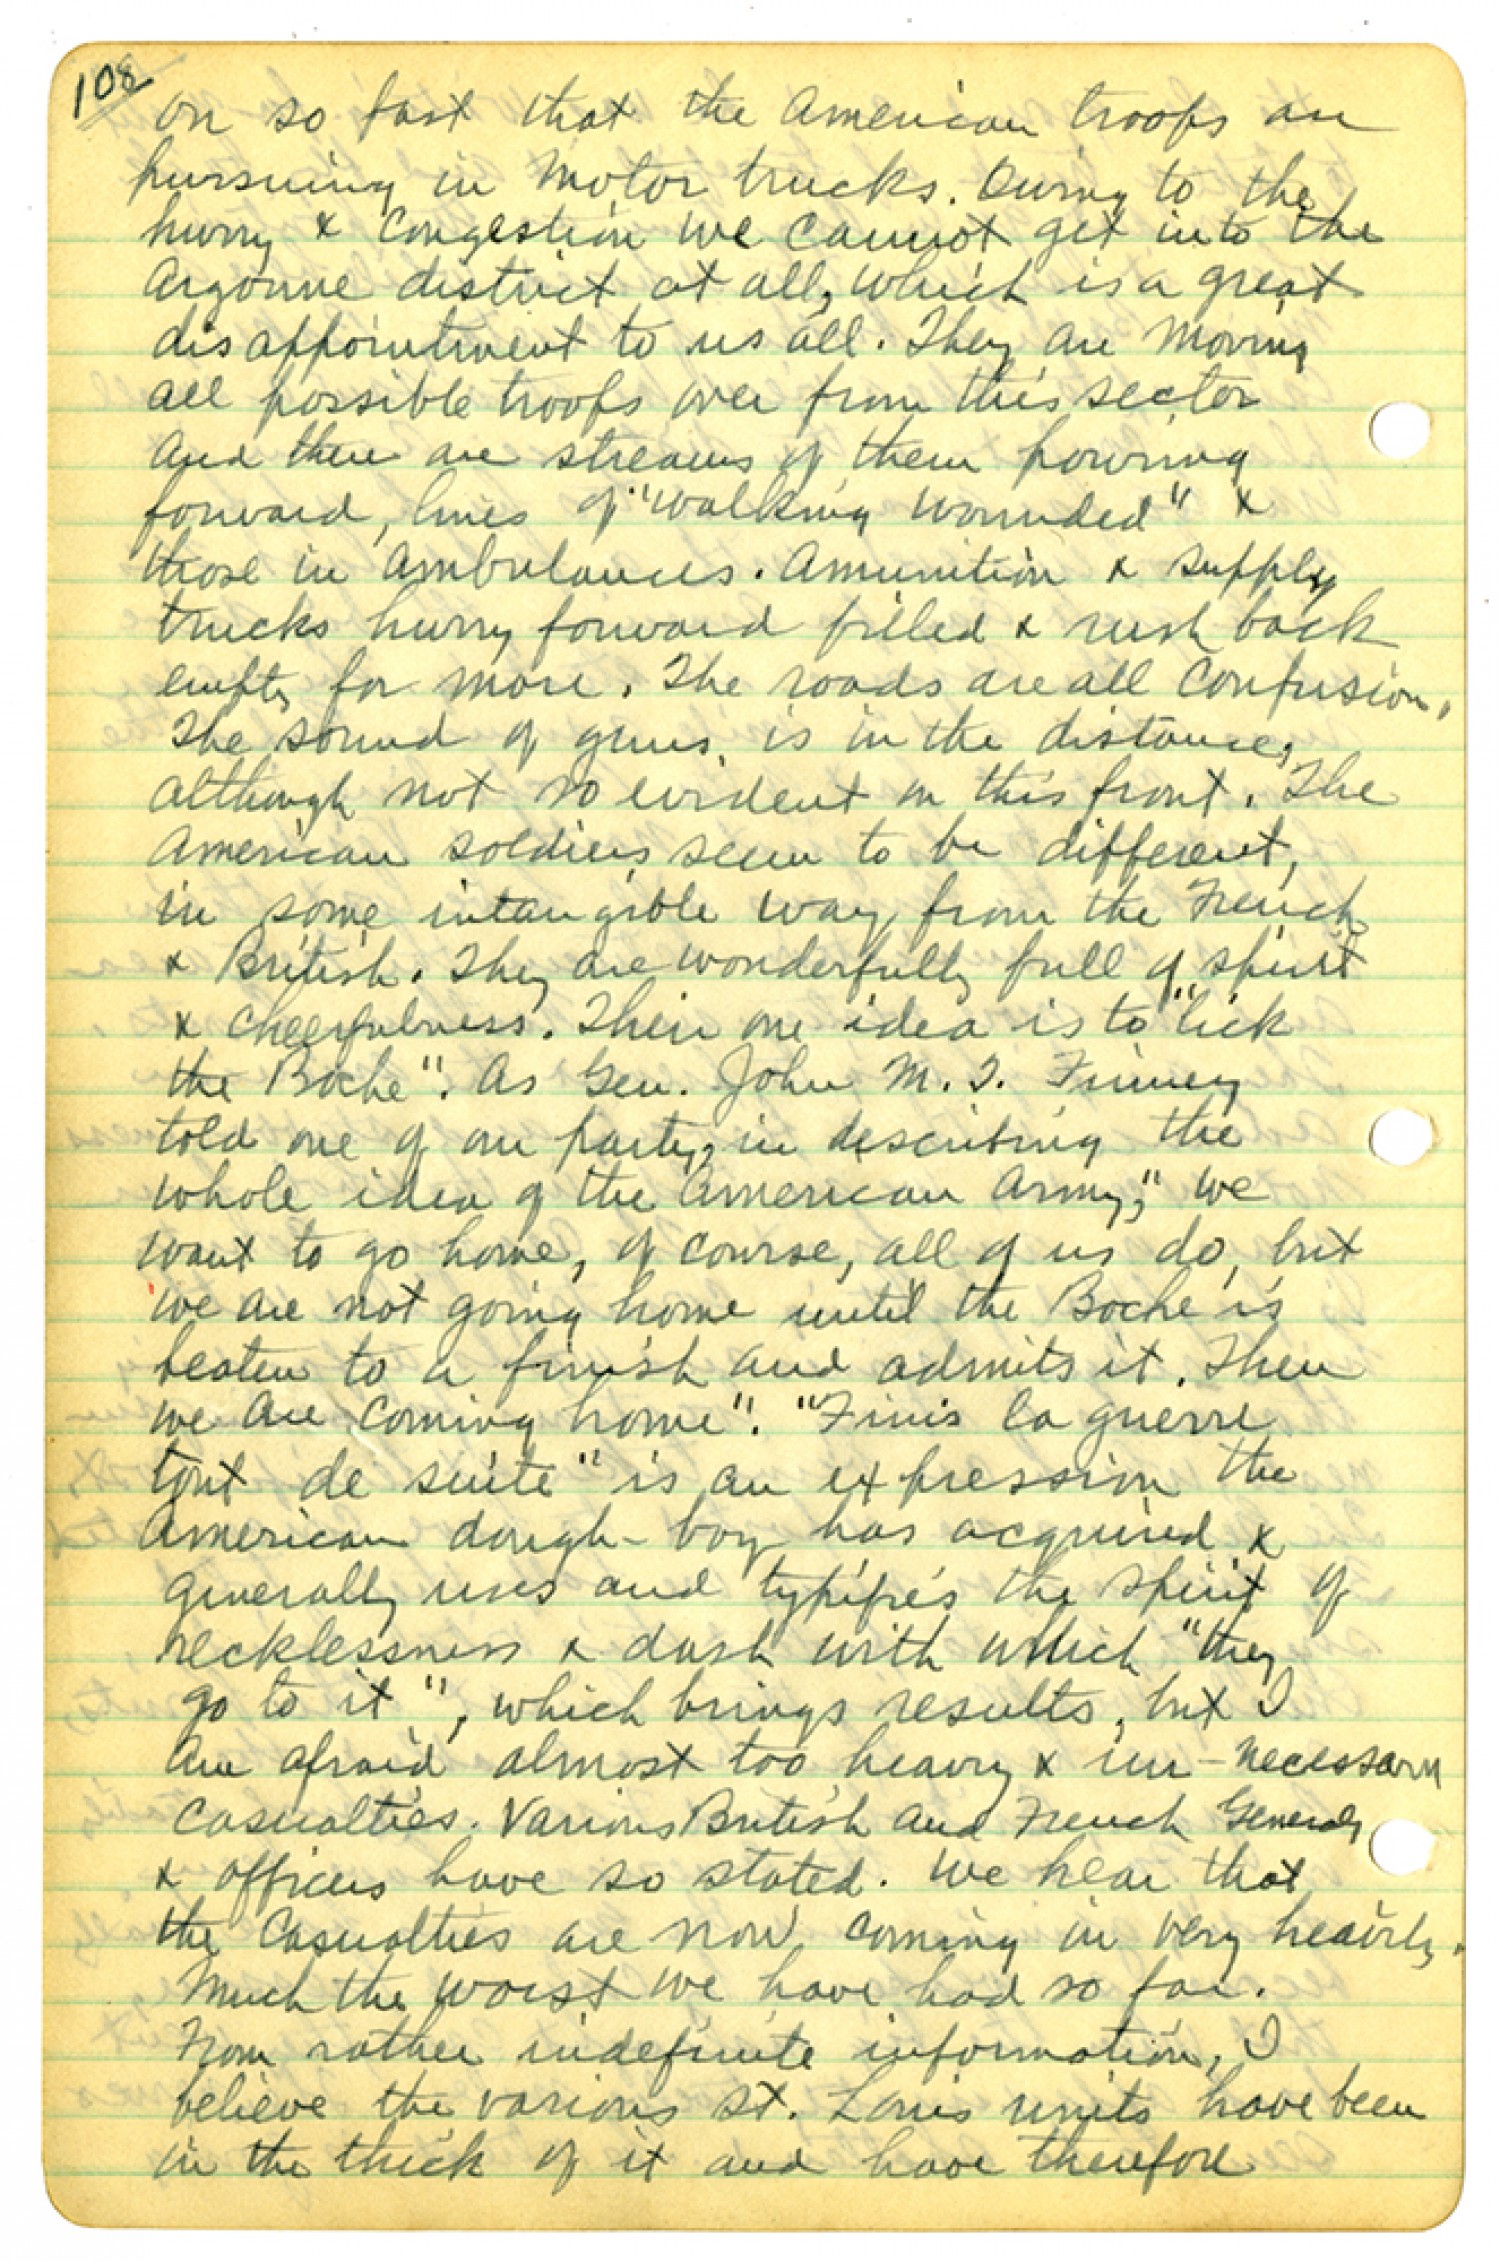 108
on so fast that the American troops are
pursuing in motor trucks. Owing to the
hurry & congestion we cannot get into the
Argonne district at all, which is a great
disappointment to us all. They are moving
all possible troops over from this sector
and there are streams of them pouring
forward, lines of "walking wounded" &
those in ambulances. Amunition & supply
trucks hurry forward filled & rush back
empty for more. The roads are all confusion.
The sound of guns, is in the distance,
although not so evident on this front. The
American soldiers, seem to be different,
in some intangible way from the French
& British. They are wonderfully full of spirit
& cheerfulness. Their one idea is to "lick
the Boche". As Gen. John M. T. Finney
told one of our party, in describing the
whole idea of the American Army, "We
want to go home, of course, all of us do, but
we are not going home until the Boche is
beaten to a finish and admits it. Then
we are coming home". "Finis la guerre
tout de suite" is an expression the
American dough-boy has acquired &
generally uses and typifies the spirit of
recklessness & dash with which "they
go to it", which brings results, but I
am afraid almost too heavy & un-necessary
casualties. Various British and French Generals
& officers have so stated. We hear that
the casualties are now coming in very heavily.
Much the worst we have had so far.
From rather indefinite information, I
believe the various St. Louis units have been
in the thick of it and have therefore